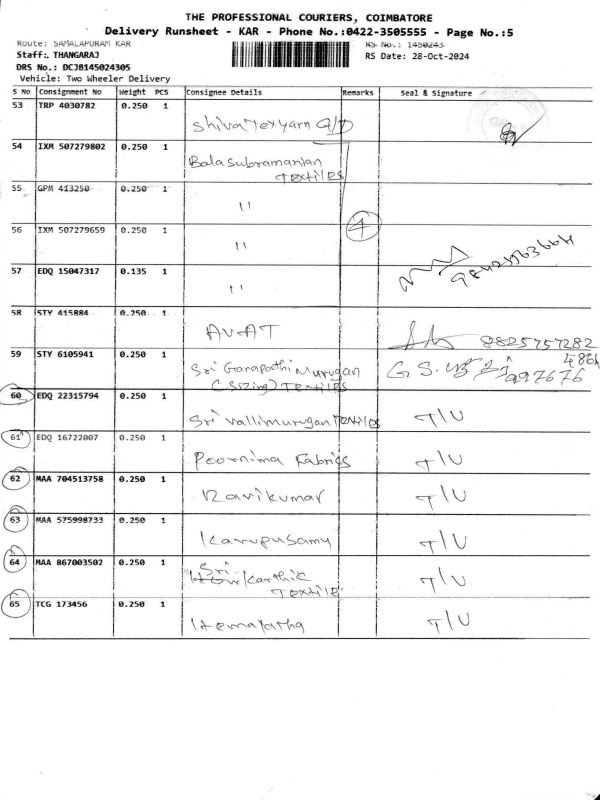 THE PROFESSIONAL COURIERS, COIMBATORE
Delivery Runsheet - KAR - Phone No.:0422-3505555 - Page No.:5
Route: SAMALAPURAM KAR
RS No.: 1450243
Staff: THANGARAJ
RS Date: 28-Oct-2024
DRS No.: DCJB145024305
Vehicle: Two Wheeler Delivery
S No Consignment No Weight PCS Consignee Details Remarks Seal & Signature
53 TRP 4030782 0.250 1
Shiva Texyarn G/D
54 IXM 507279802 0.250 1
Balasubramanian
Textiles
55 GPM 413250 0.250 1
"
56 IXM 507279659 0.250 1 4
"
57 EDQ 15047317 0.135 1
"
58 STY 415884 0.250 1
AVAT 8825757282
59 STY 6105941 0.250 1
Sri Ganapathi Murugan G.S.
(Sizing) Textiles
60 EDQ 22315794 0.250 1
Sri Vallimurugan Textiles T/U
61 EDQ 16722007 0.250 1
Poornima Fabrics T/U
62 MAA 704513758 0.250 1
Ravikumar T/U
63 MAA 575998733 0.250 1
Karupusamy T/U
64 MAA 867003502 0.250 1
Sri
Karthic T/U
Textile
65 TCG 173456 0.250 1
Hemalatha T/U